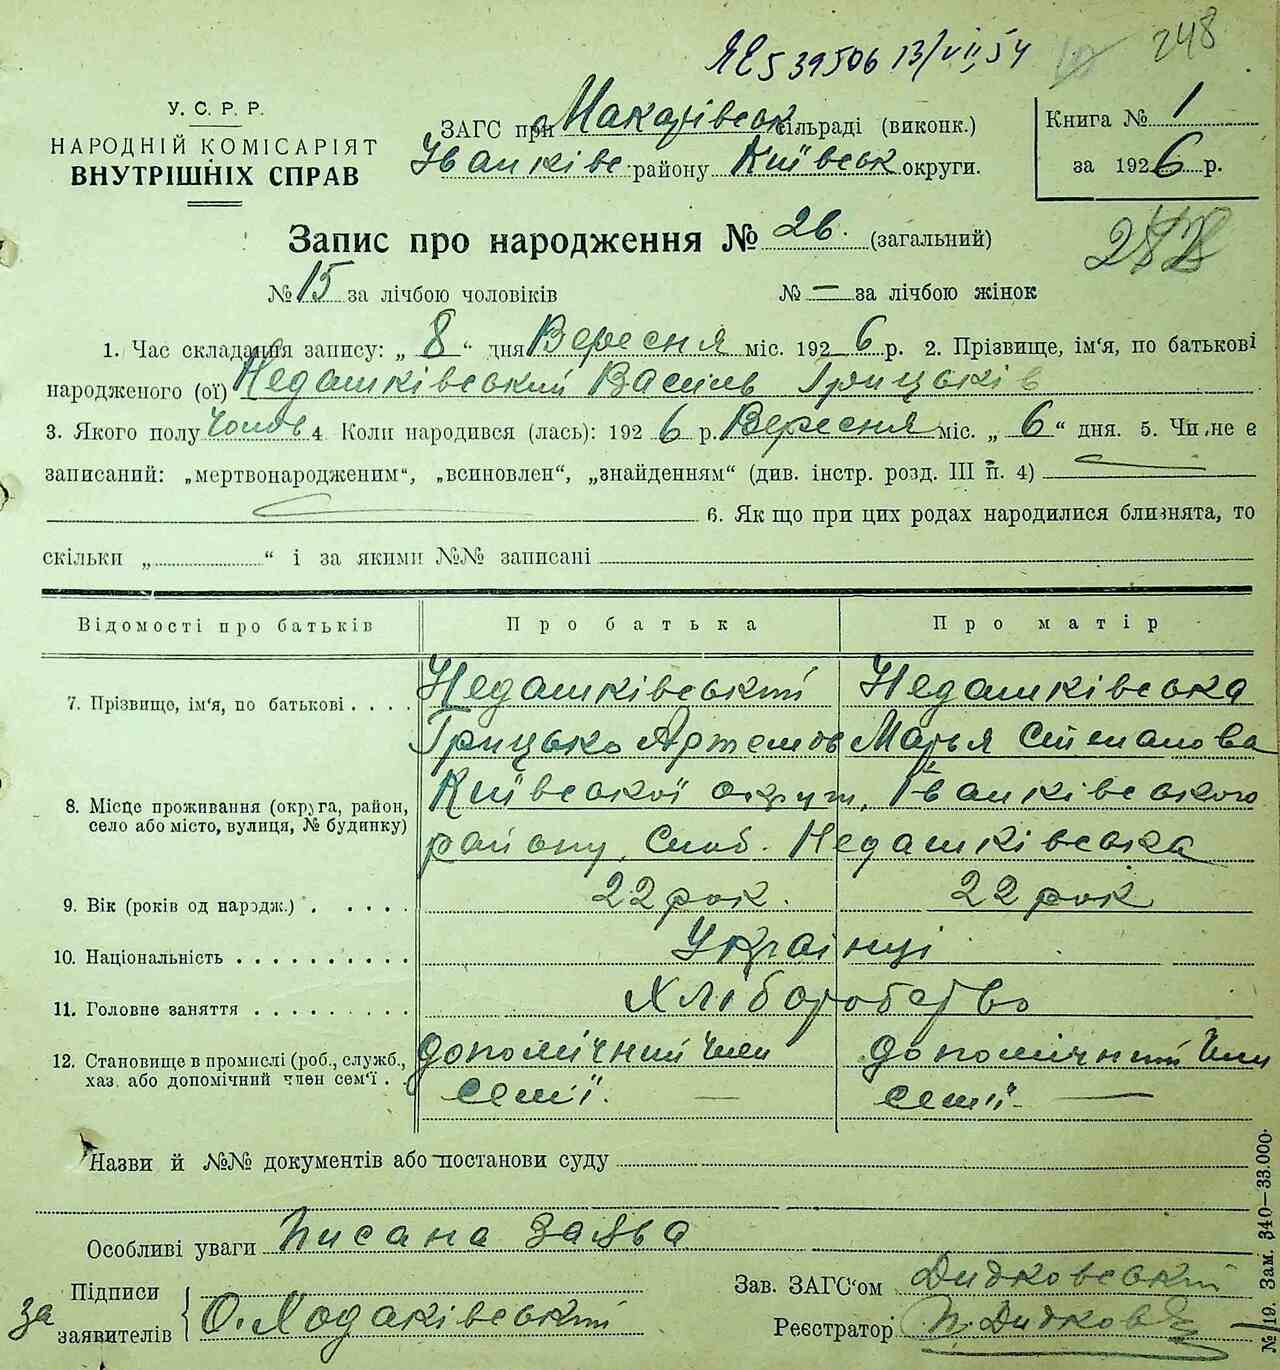 ЯЕ 539506 13/VII 54 248
У. С. Р. Р.
НАРОДНІЙ КОМІСАРІЯТ
ВНУТРІШНІХ СПРАВ
ЗАГС при Макарівськ сільраді (виконк.)
Іванківс району Київськ округи.
Книга № 1
за 1926 р.
Запис про народження № 26. (загальний)
248
№ 15 за лічбою чоловіків № — за лічбою жінок
1. Час складання запису: „ 8 “ дня Вересня міс. 1926 р. 2. Прізвище, ім‘я, по батькові
народженого (ої) Недашківський Василь Грицьків
3. Якого полу Чолов 4. Коли народився (лась): 1926 р. Вересня міс. „ 6 “ дня. 5. Чи не є
записаний: „мертвонародженим“, „всиновлен“, „знайденням“ (див. інстр. розд. III п. 4)
6. Як що при цих родах народилися близнята, то
скільки „ “ і за якими №№ записані
Відомості про батьків Про батька Про матір
7. Прізвище, ім‘я, по батькові . . . . Недашківський Недашківська
Грицько Артемов Марья Степанова
8. Місце проживання (округа, район, Київської округи, Іванківського
село або місто, вулиця, № будинку) району, Слоб. Недашківська
9. Вік (років од народж.) . . . . . 22 рок. 22 рок
10. Національність . . . . . . . . . . Українці
11. Головне заняття . . . . . . . . . Хліборобство
12. Становище в промислі (роб., служб., допомічний член допомічний член
хаз. або допомічний член сем‘ї . . семії. — семії. —
Назви й №№ документів або постанови суду
Особливі уваги Писана заява
Підписи
за заявителів О. Ходаківський
Зав. ЗАГС‘ом Дидковський
Реєстратор П. Дидковс
№ 119. Зам. 340—33.000.